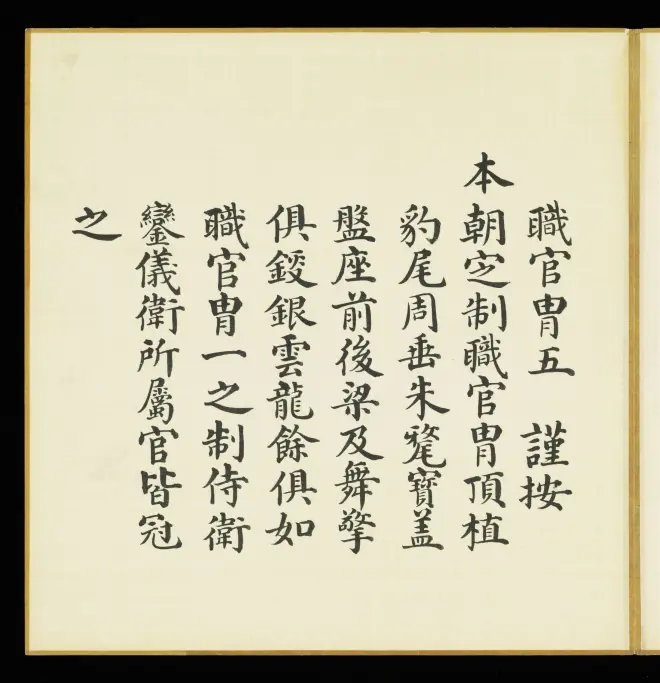 職官冑五　謹按
本朝定制職官冑頂植
豹尾周垂朱氂寶盖
盤座前後梁及舞擎
俱鋄銀雲龍餘俱如
職官冑一之制侍衛
鑾儀衛所屬官皆冠
之